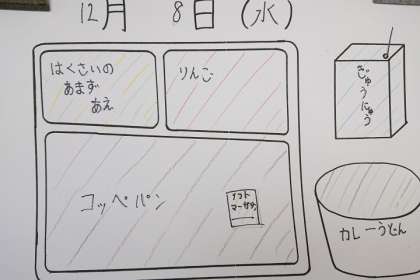 12月 8日 (水)
はくさいの
あまず
あえ
りんご
ぎゅうにゅう
コッペパン
ソフト
マーガリン
カレーうどん